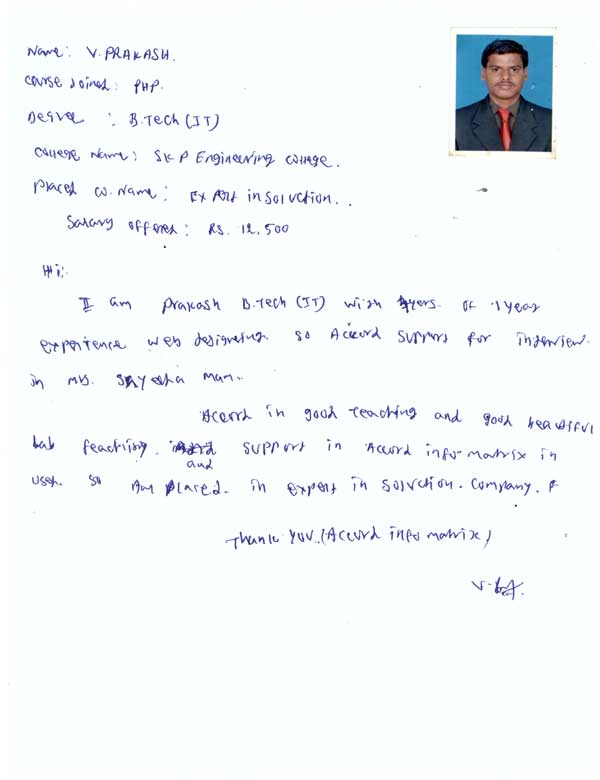 Name: V. PRAKASH.
Course Joined: PHP.
Degree : B.Tech (IT)
College Name: S.K.P Engineering College.
Placed Co. Name: Expert in Solvction.
Salary Offered: Rs. 12,500
Hi:
I am Prakash B.Tech (IT) with of 1 year
experience web designing. so Accord support for interview.
in Mam.
Accord in good teaching and good beatifui
lab support in Accord info matrix in
and
so placed in expert in Solvction. Company.
Thank you. (Accord info matrix)